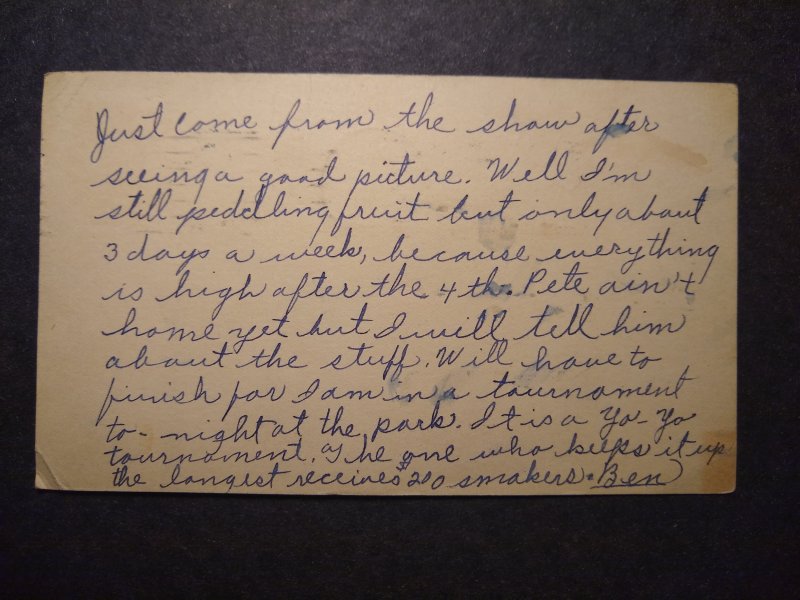 Just come from the show after
seeing a good picture. Well I'm
still peddling fruit but only about
3 days a week, because everything
is high after the 4 th. Pete ain't
home yet but I will tell him
about the stuff. Will have to
finish for I am in a tournament
to-night at the park. It is a Yo-Yo
tournament. The one who keeps it up
the longest receives $20 smakers. Ben